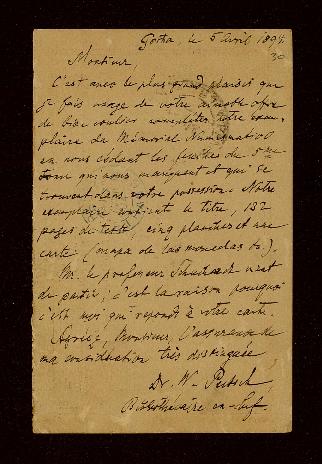 Gotha, le 5 Avril 1894.
30
Monsieur,
C'est avec le plus grand plaisir que
je fais usage de votre aimable offre
de bien vouloir compléter notre exem-
plaire du Mémorial Numismatico
en nous cédant les feuilles du 5me
tome qui nous manquent et qui se
trouvent dans votre possession. Notre
exemplaire contient le titre, 132
pages de texte, cinq planches et une
carte (mapa de las monedas &.).
Mr. le professeur vient
de partir; c'est la raison pourquoi
c'est moi qui réponds à votre carte.
Agréez, Monsieur, l'assurance de
ma considération très distinguée
Dr. W. Pertsch
Bibliothécaire en chef